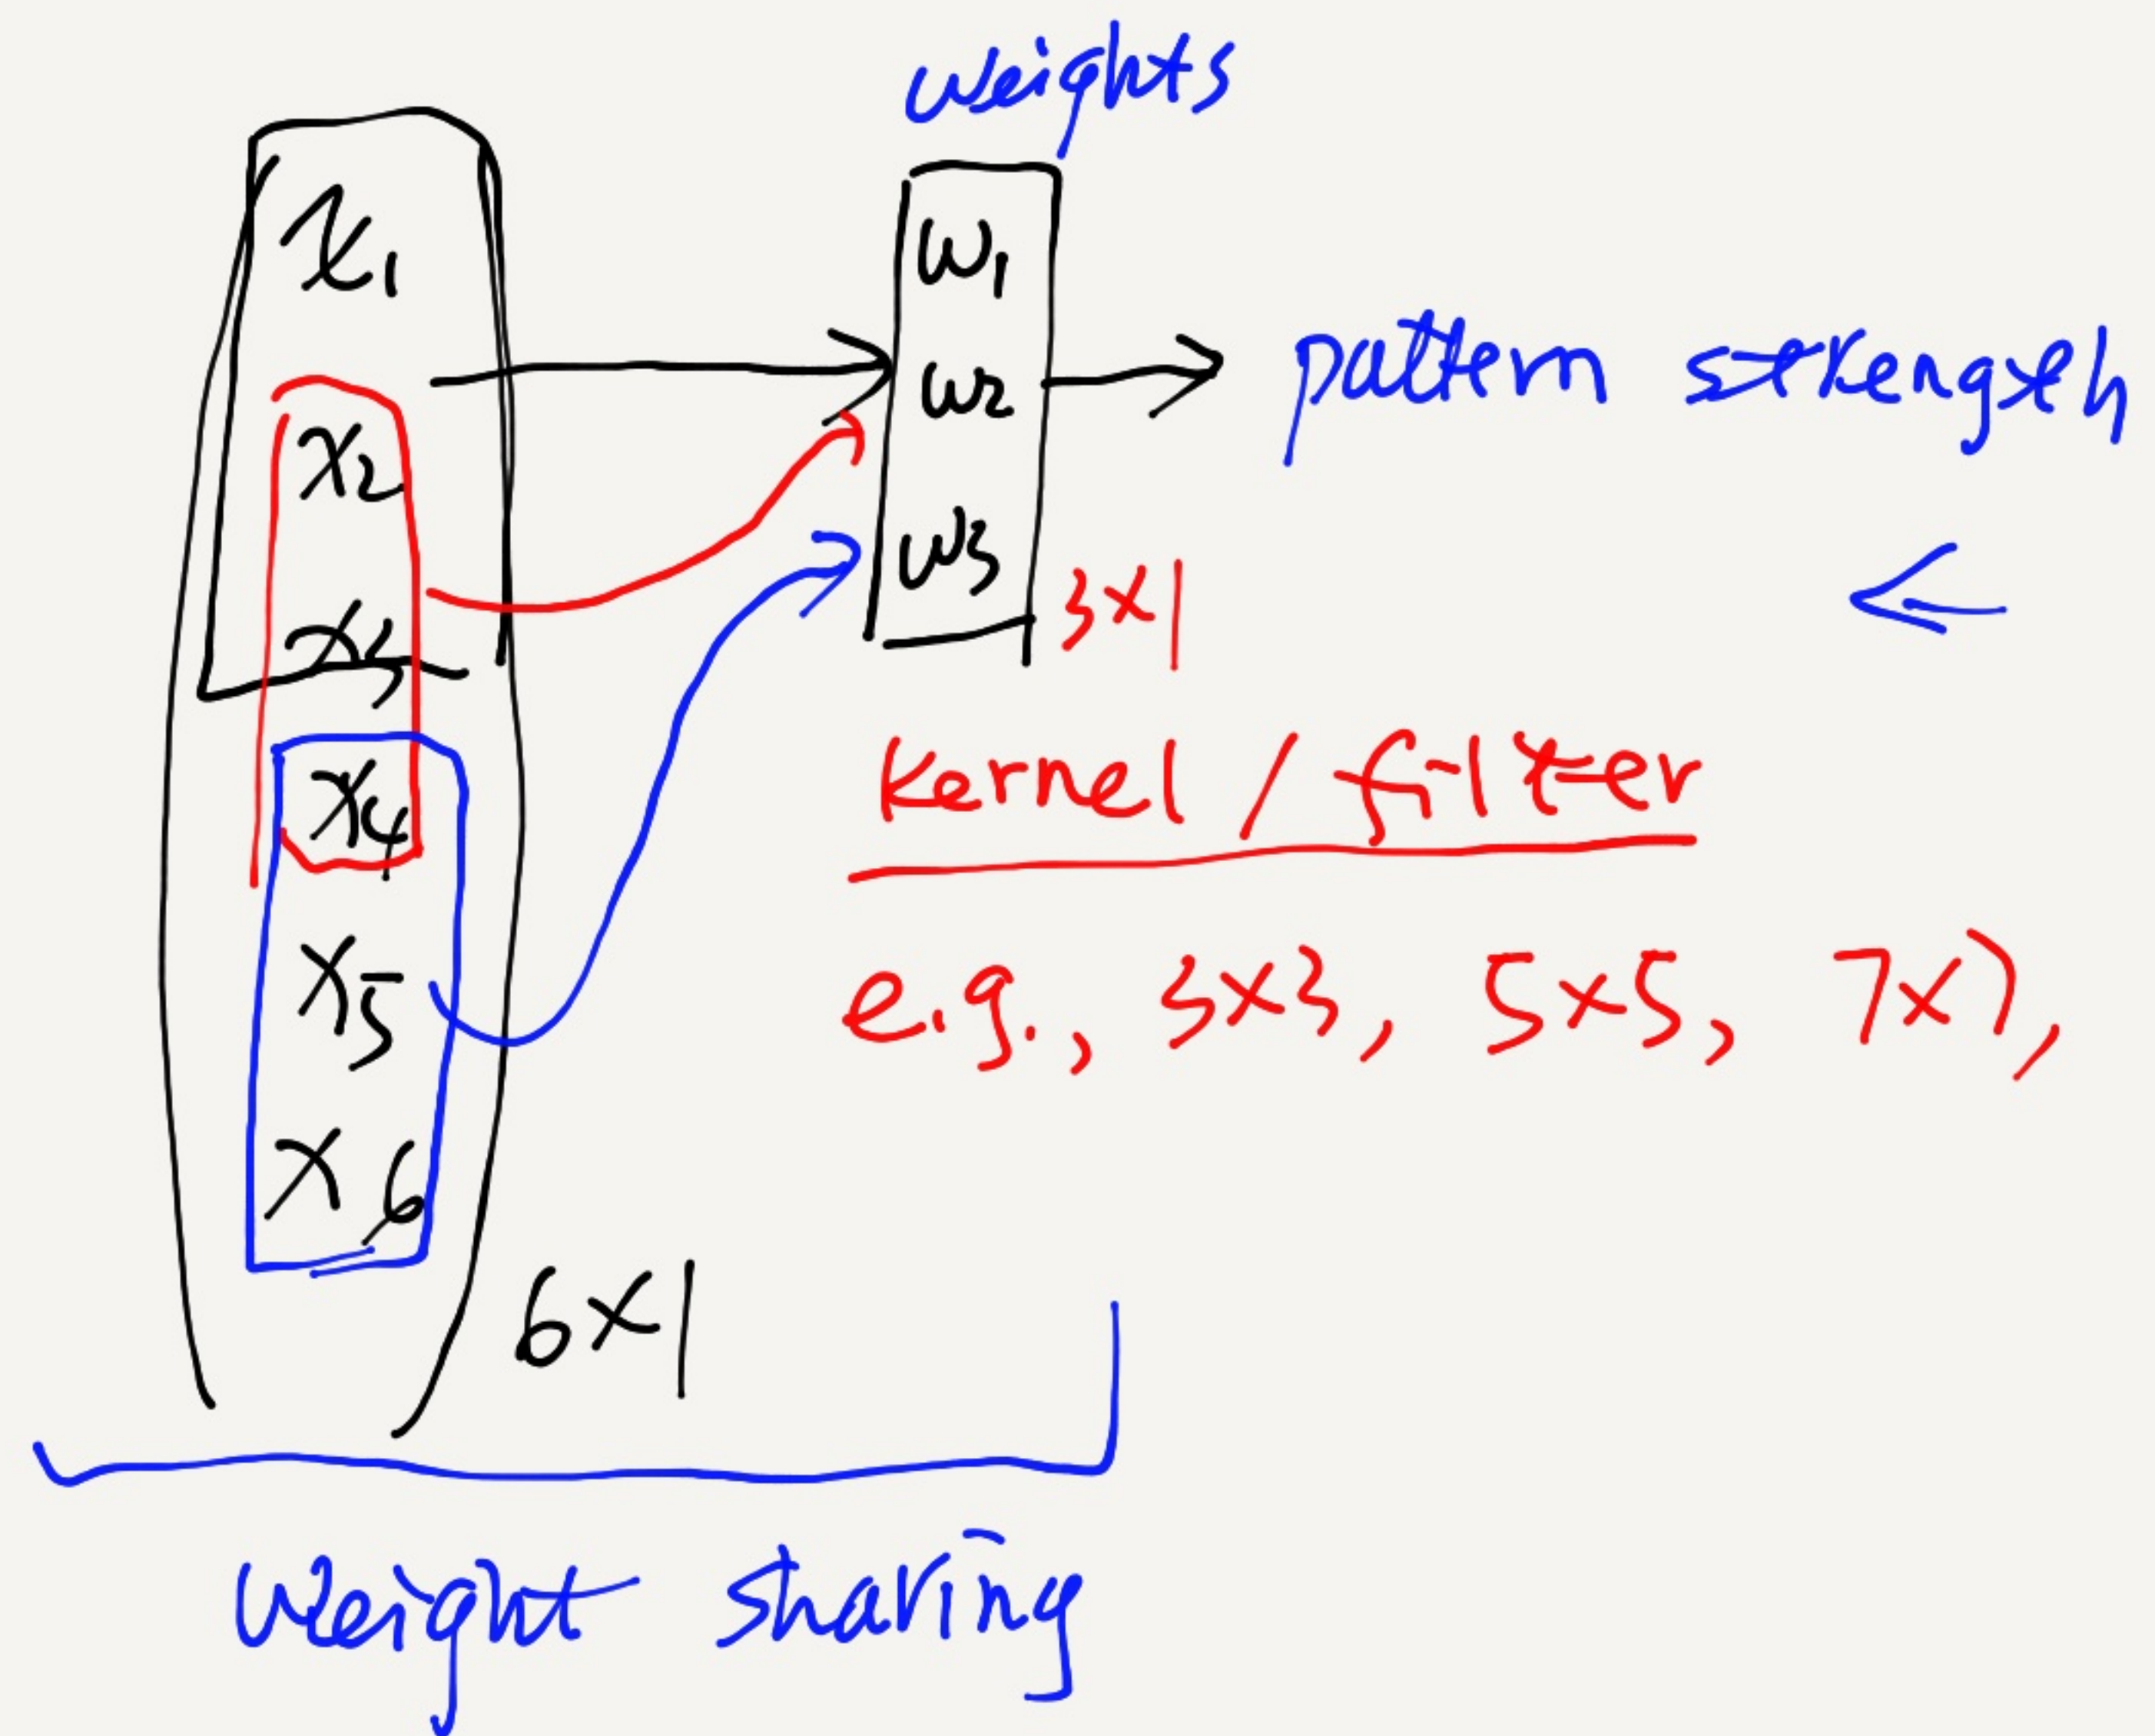 weights
x1
x2
x3
x4
x5
x6
6×1
w1
w2
w3
3×1
pattern strength
kernel / filter
e.g., 3×3, 5×5, 7×7,
weight sharing